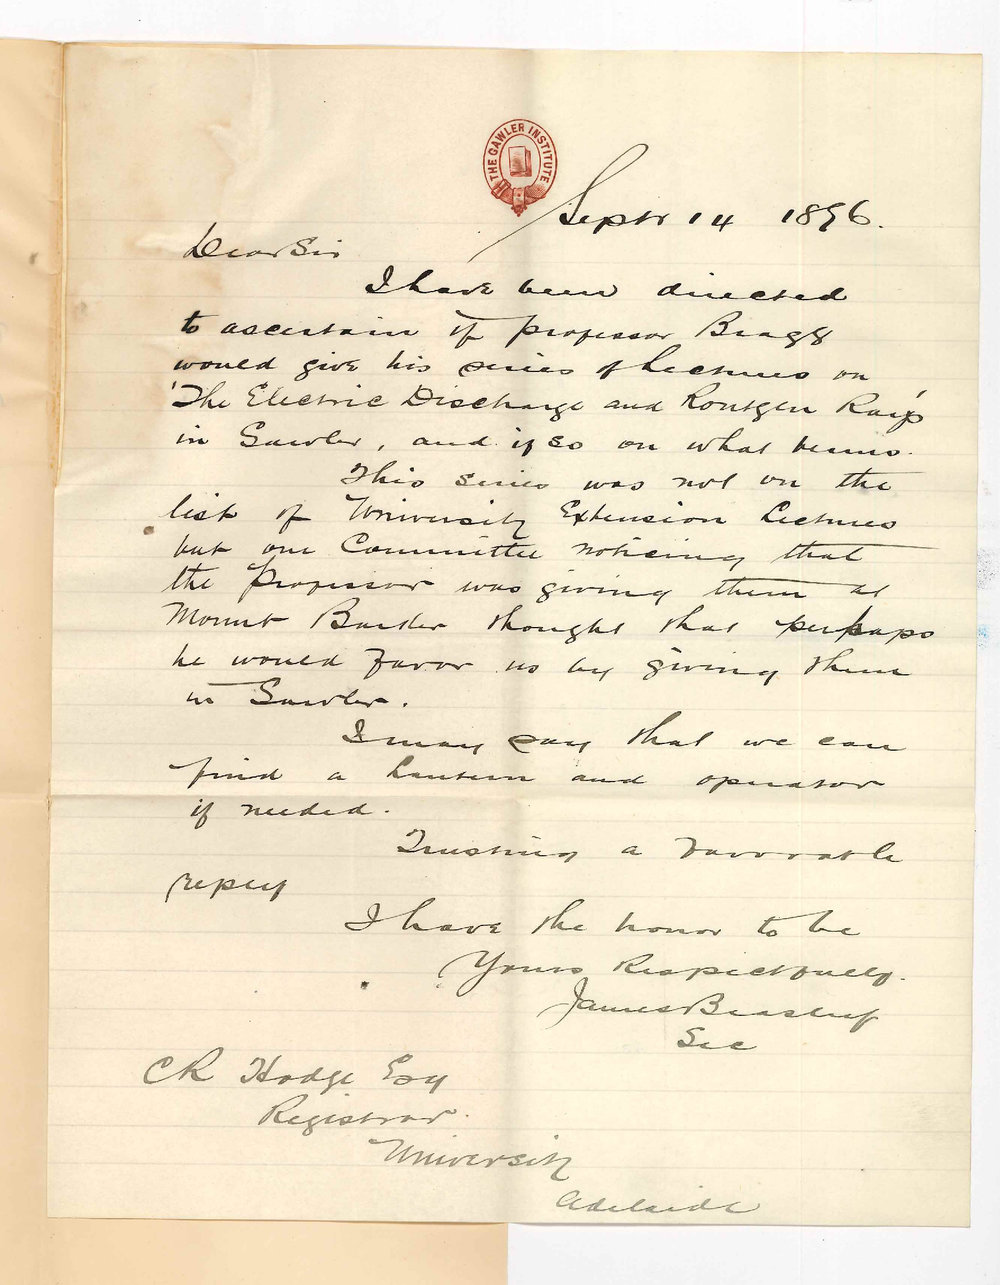 THE GAWLER INSTITUTE
Septr 14 1896.
Dear Sir
I have been directed
to ascertain if professor Bragg
would give his series of Lectures on
'The Electric Discharge and Rontgen Rays'
in Gawler, and if so on what terms.
This series was not on the
list of University Extension Lectures
but our Committee noticing that
the Professor was giving them at
Mount Barker thought that perhaps
he would favor us by giving them
in Gawler.
I may say that we can
find a Lantern and operator
if needed.
Trusting a favorable
reply
I have the honor to be
Yours Respectfully.
James
Sec
CR Hodge Esq
Registrar.
University
Adelaide